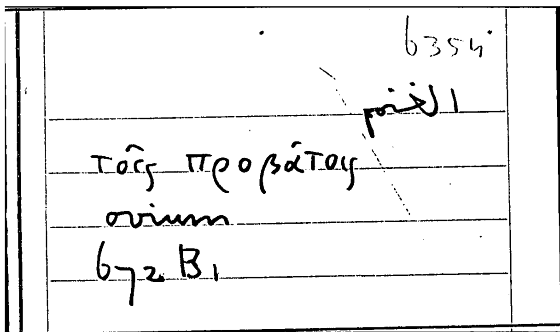 6354
الغنم
τοῖς προβάτοις
ovium
672 B1